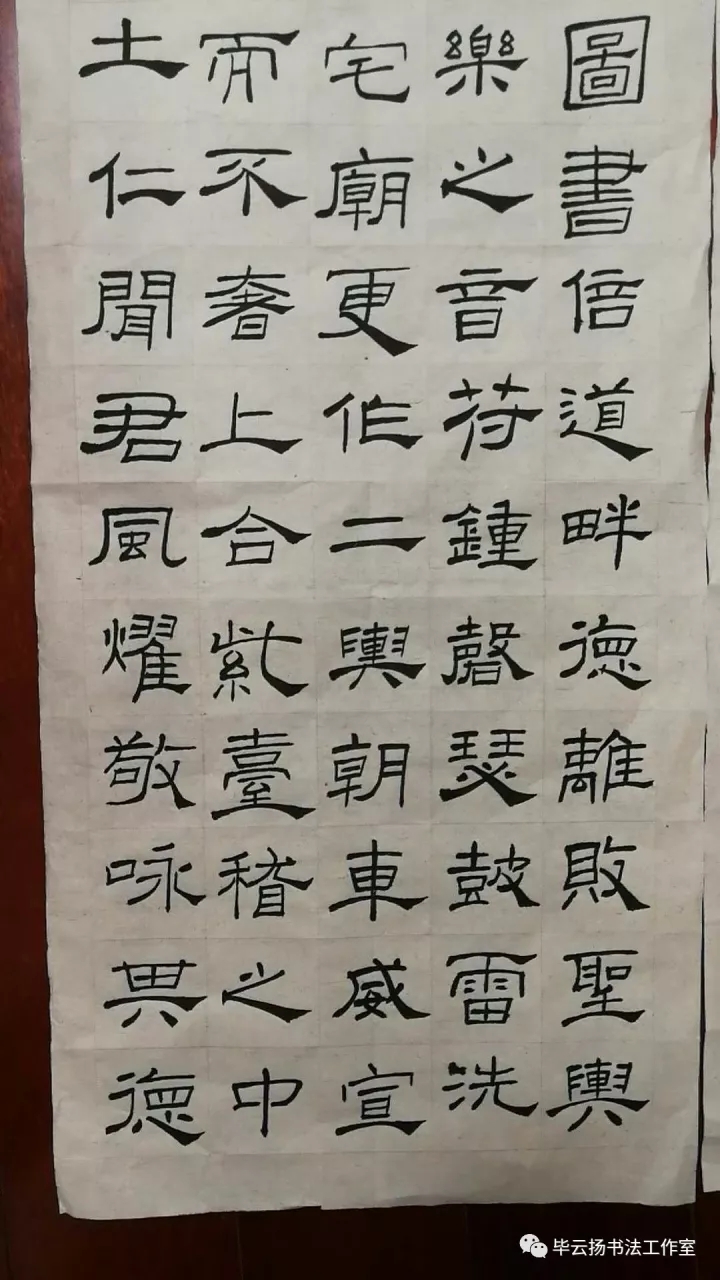 圖書倍道畔德離敗聖輿
樂之音苻鍾磬瑟鼓雷洗
宅廟更作二輿朝車威宣
而不奢上合紫臺稽之中
土仁聞君風燿敬咏其德
毕云扬书法工作室